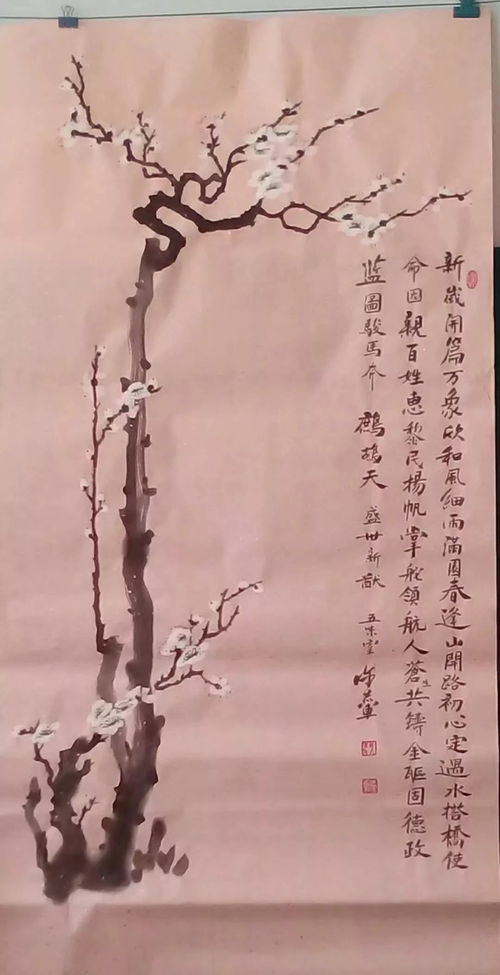 新歲開篇万象欣和風细雨滿園春逢山開路初心定遇水搭橋使
命因親百姓惠黎民揚帆掌舵領航人蒼生共鑄金瓯固德政
监圖駿馬奔 鹧鸪天 盛世新猷 五味堂